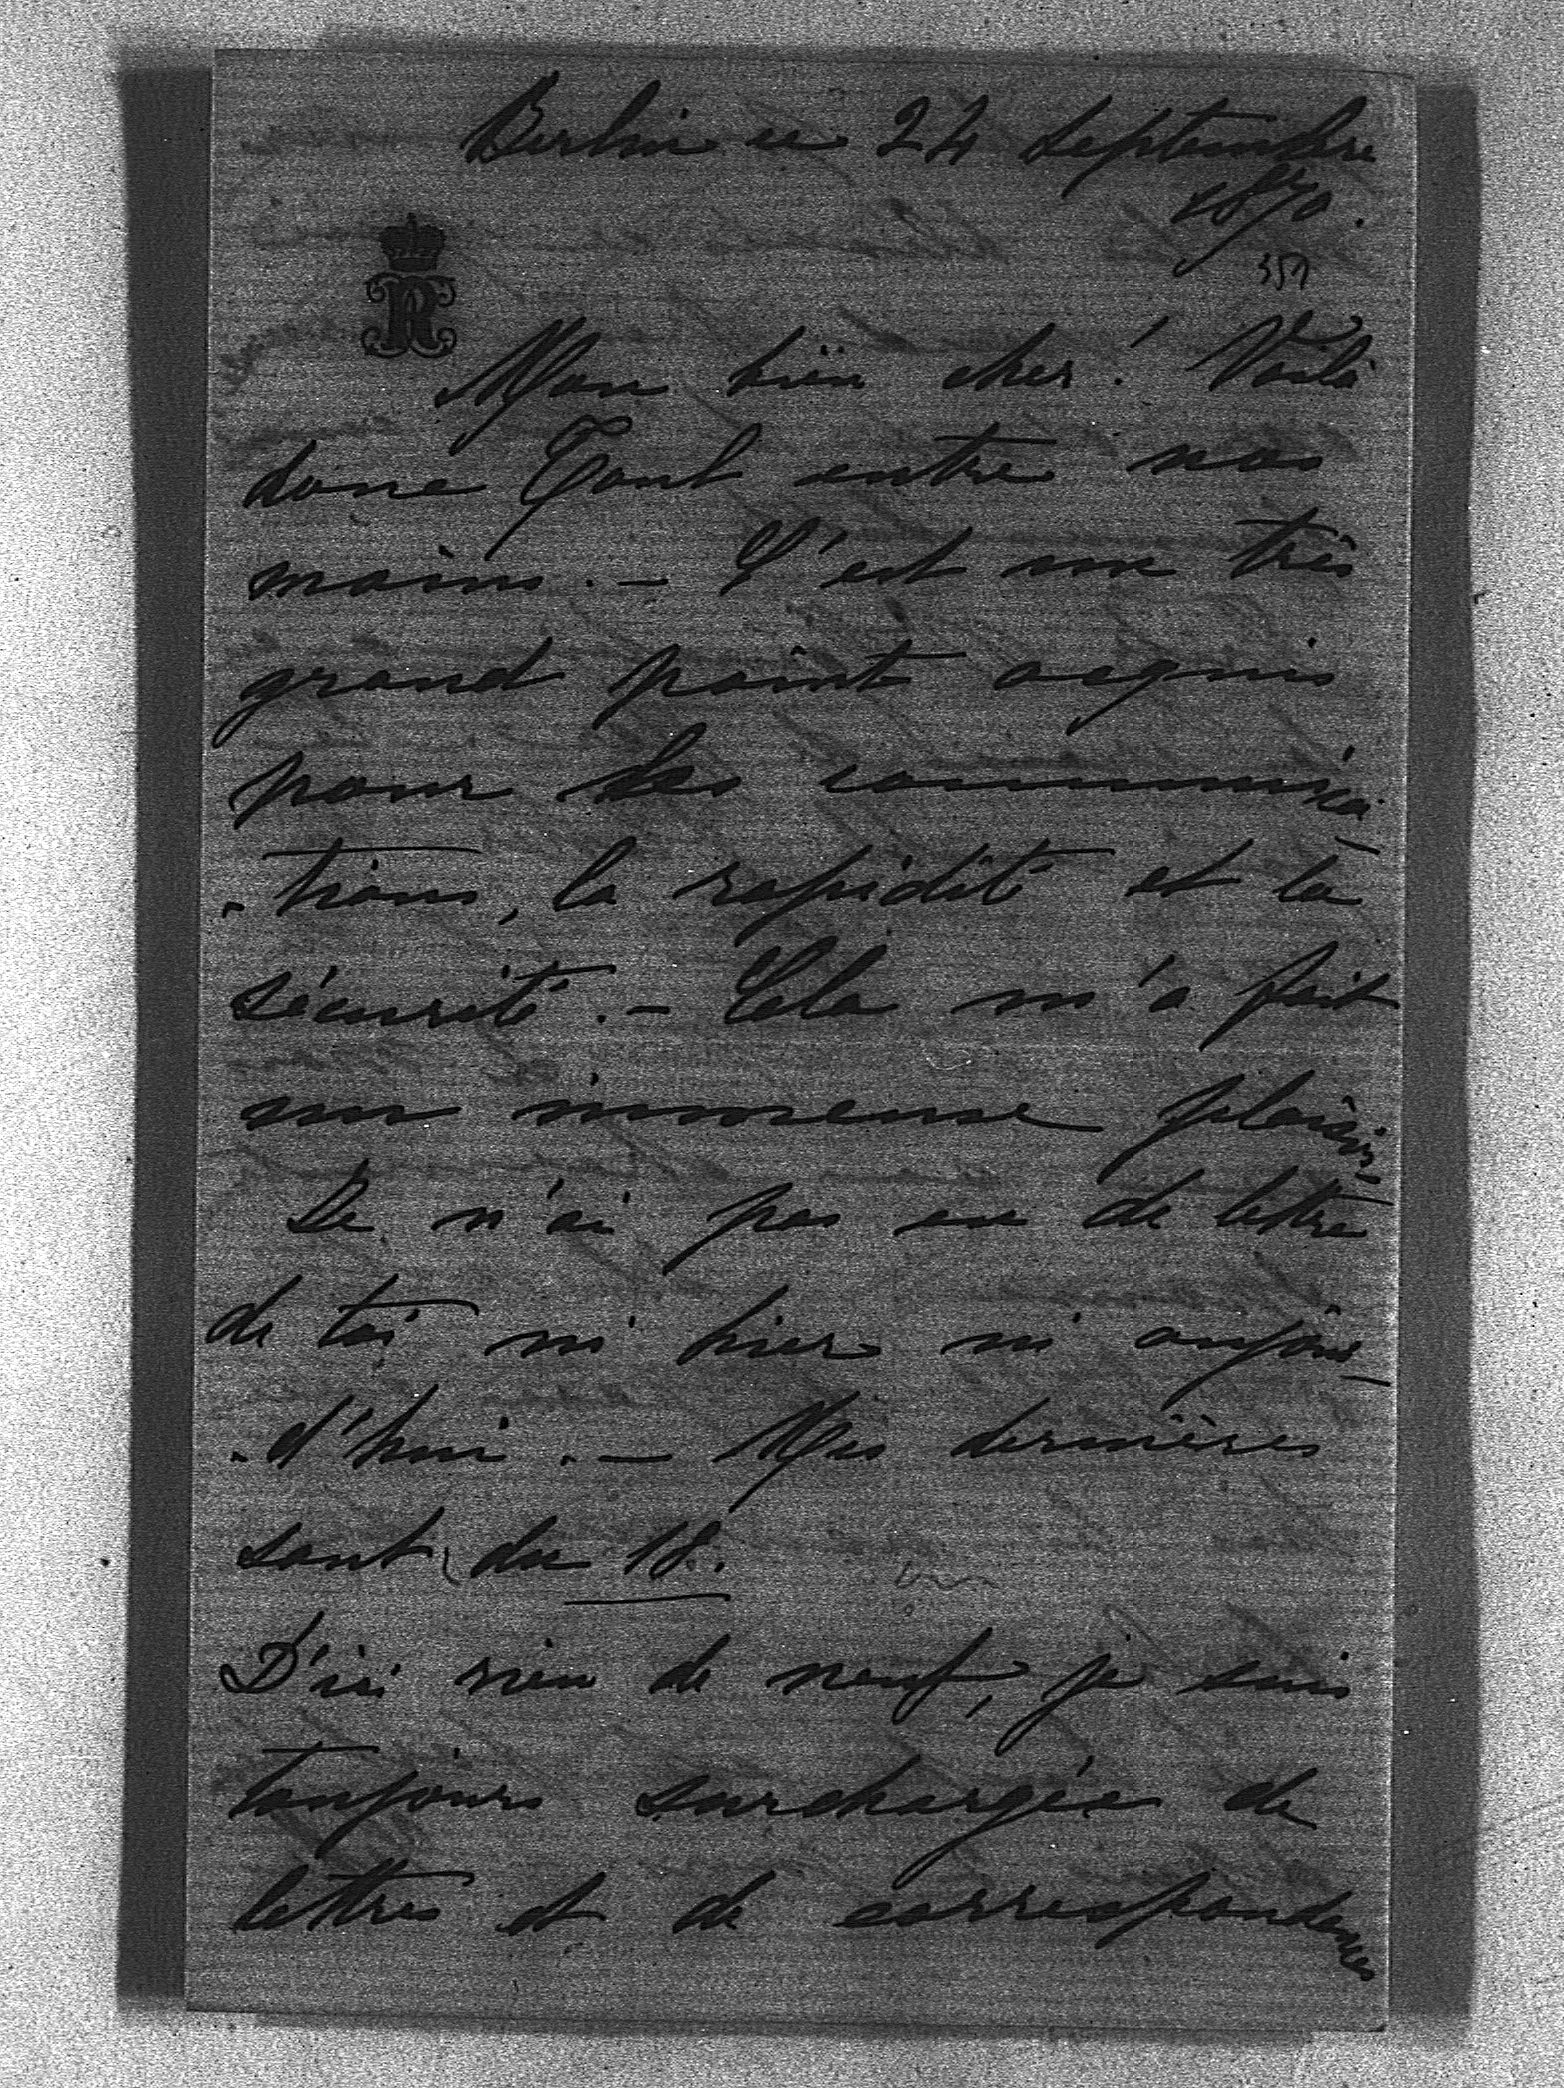 Berlin ce 24 septembre
1870.
351
R
Mon bien cher! Voilà
donc Toul entre nos
mains. – C'est un très
grand point acquis
pour les communica-
-tions, la rapidité et la
sécurité. – Cela m'a fait
un immense plaisir
Je n'ai pas eu de lettre
de toi ni hier ni aujour-
-d'hui. – Mes dernières
sont du 18.
D'ici rien de neuf, je suis
toujours surchargée de
lettres et de correspondances